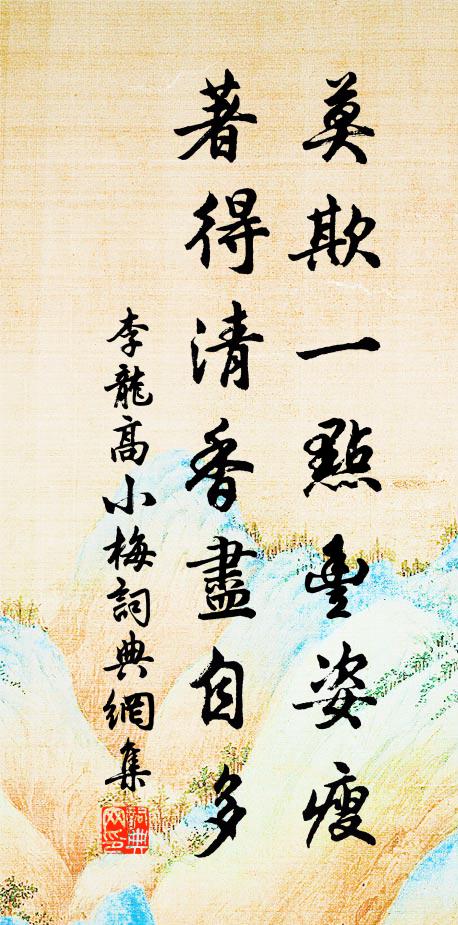 莫欺一點丰姿瘦
著得清香盡自多
李龍高小梅詞典網集
詞典網印